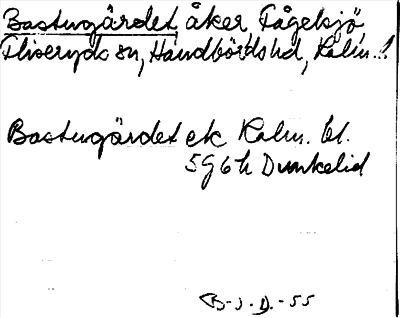 Bastugärdet, åker, Fågelsjö,
Fliseryds sn, Handbörds hd, Kalm. l
Bastugärdet ek Kalm. bl.
5 G 6 h Dunkelid
B-J. D. -55